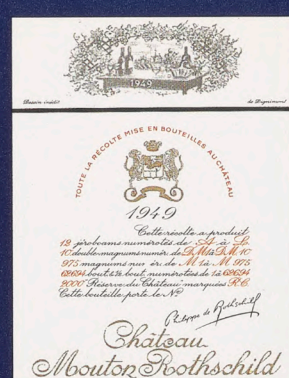 1949
Dessin inédit de Dignimont
TOUTE LA RÉCOLTE MISE EN BOUTEILLES AU CHÂTEAU
1949
Cette récolte a produit
12 jéroboams numérotés de A à L.
10 double magnums numér. de D.M.1 à D.M. 10
975 magnums nus és: de M. 1 à M. 975
69694 bout. & ½ bout. numérotées de 1 à 69694
2000 "Réserve du Château" marquées R.C.
Cette bouteille porte le No
Philippe de Rothschild
Château
Mouton Rothschild